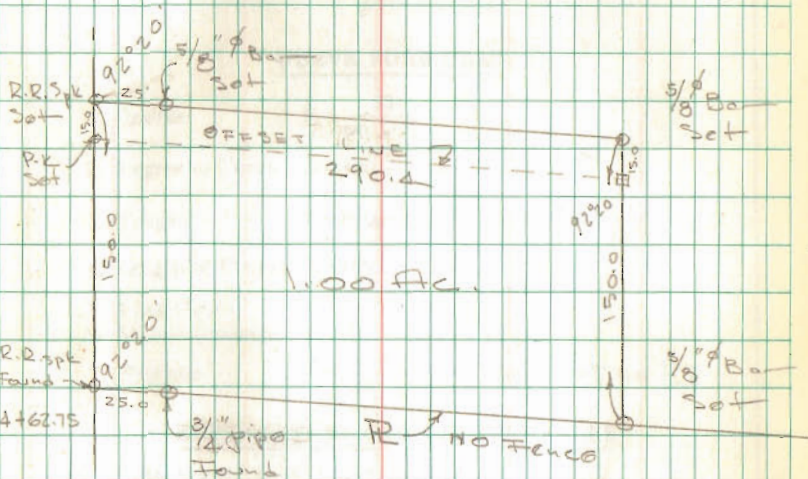 92°20'
5/8" ϕ Bar
Set
R.R. Spk
Set
25'
15.0
P.K
Set
OFFSET LINE
290.4
5/8" ϕ Bar
Set
15.0
92°20
150.0
1.00 Ac.
150.0
92°20'
R.R. spk
Found
25.0
4+62.75
3/4" pipe
Found
PL
No Fence
5/8" ϕ Bar
Set